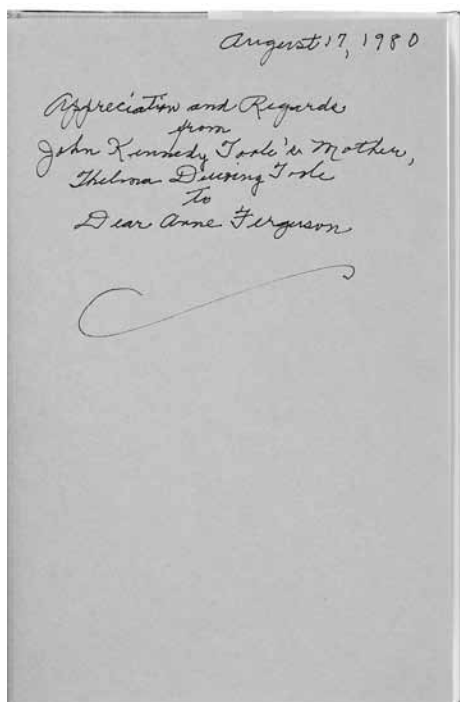 August 17, 1980
Appreciation and Regards
from
John Kennedy Toole's Mother,
Thelma Ducoing Toole
to
Dear Anne Ferguson